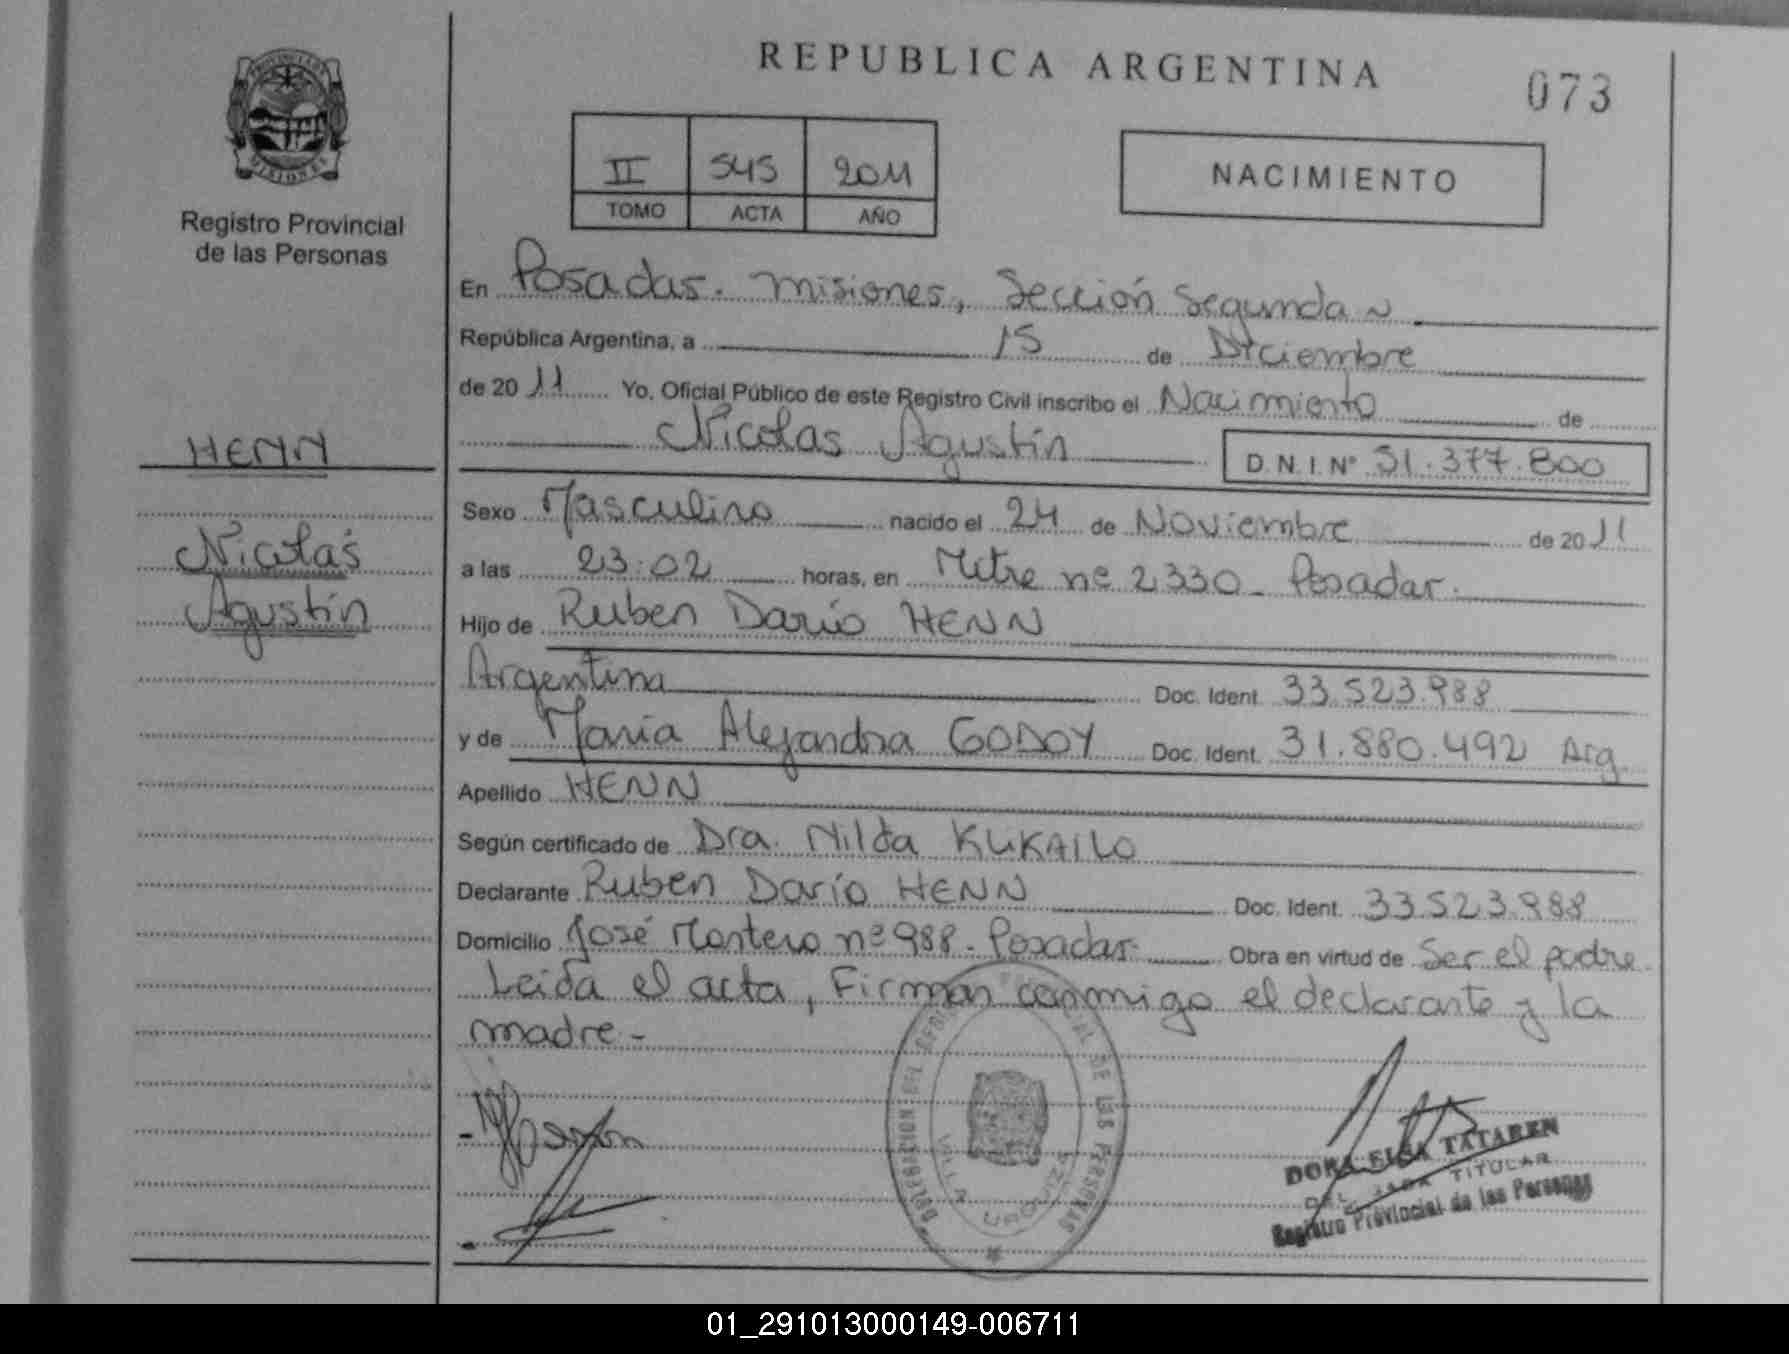 REPUBLICA ARGENTINA
073
PROVINCIA DE MISIONES
Registro Provincial
de las Personas
II 545 2011
TOMO ACTA AÑO
NACIMIENTO
En Posadas. Misiones, Sección Segunda
República Argentina, a 15 de Diciembre
de 2011 Yo, Oficial Público de este Registro Civil inscribo el Nacimiento de
Nicolas Agustín D.N.I. Nº 51.377.800
HENN
Nicolás
Agustín
Sexo Masculino nacido el 24 de Noviembre de 2011
a las 23:02 horas, en Mitre nº 2330 - Posadas.
Hijo de Ruben Darío HENN
Argentina Doc. Ident. 33.523.988
y de María Alejandra GODOY Doc. Ident. 31.880.492 Arg.
Apellido HENN
Según certificado de Dra. Nilda KUKAILO
Declarante Ruben Darío HENN Doc. Ident. 33.523.988
Domicilio José Montero nº 988 - Posadas - Obra en virtud de Ser el padre.
Leida el acta, Firman conmigo el declarante y la
madre -
DELEGACION REGISTRO PROVINCIAL DE LAS PERSONAS
VILLA URQUIZA
DORA ELSA TATAREN
DELEGADA TITULAR
Registro Provincial de las Personas
01_291013000149-006711